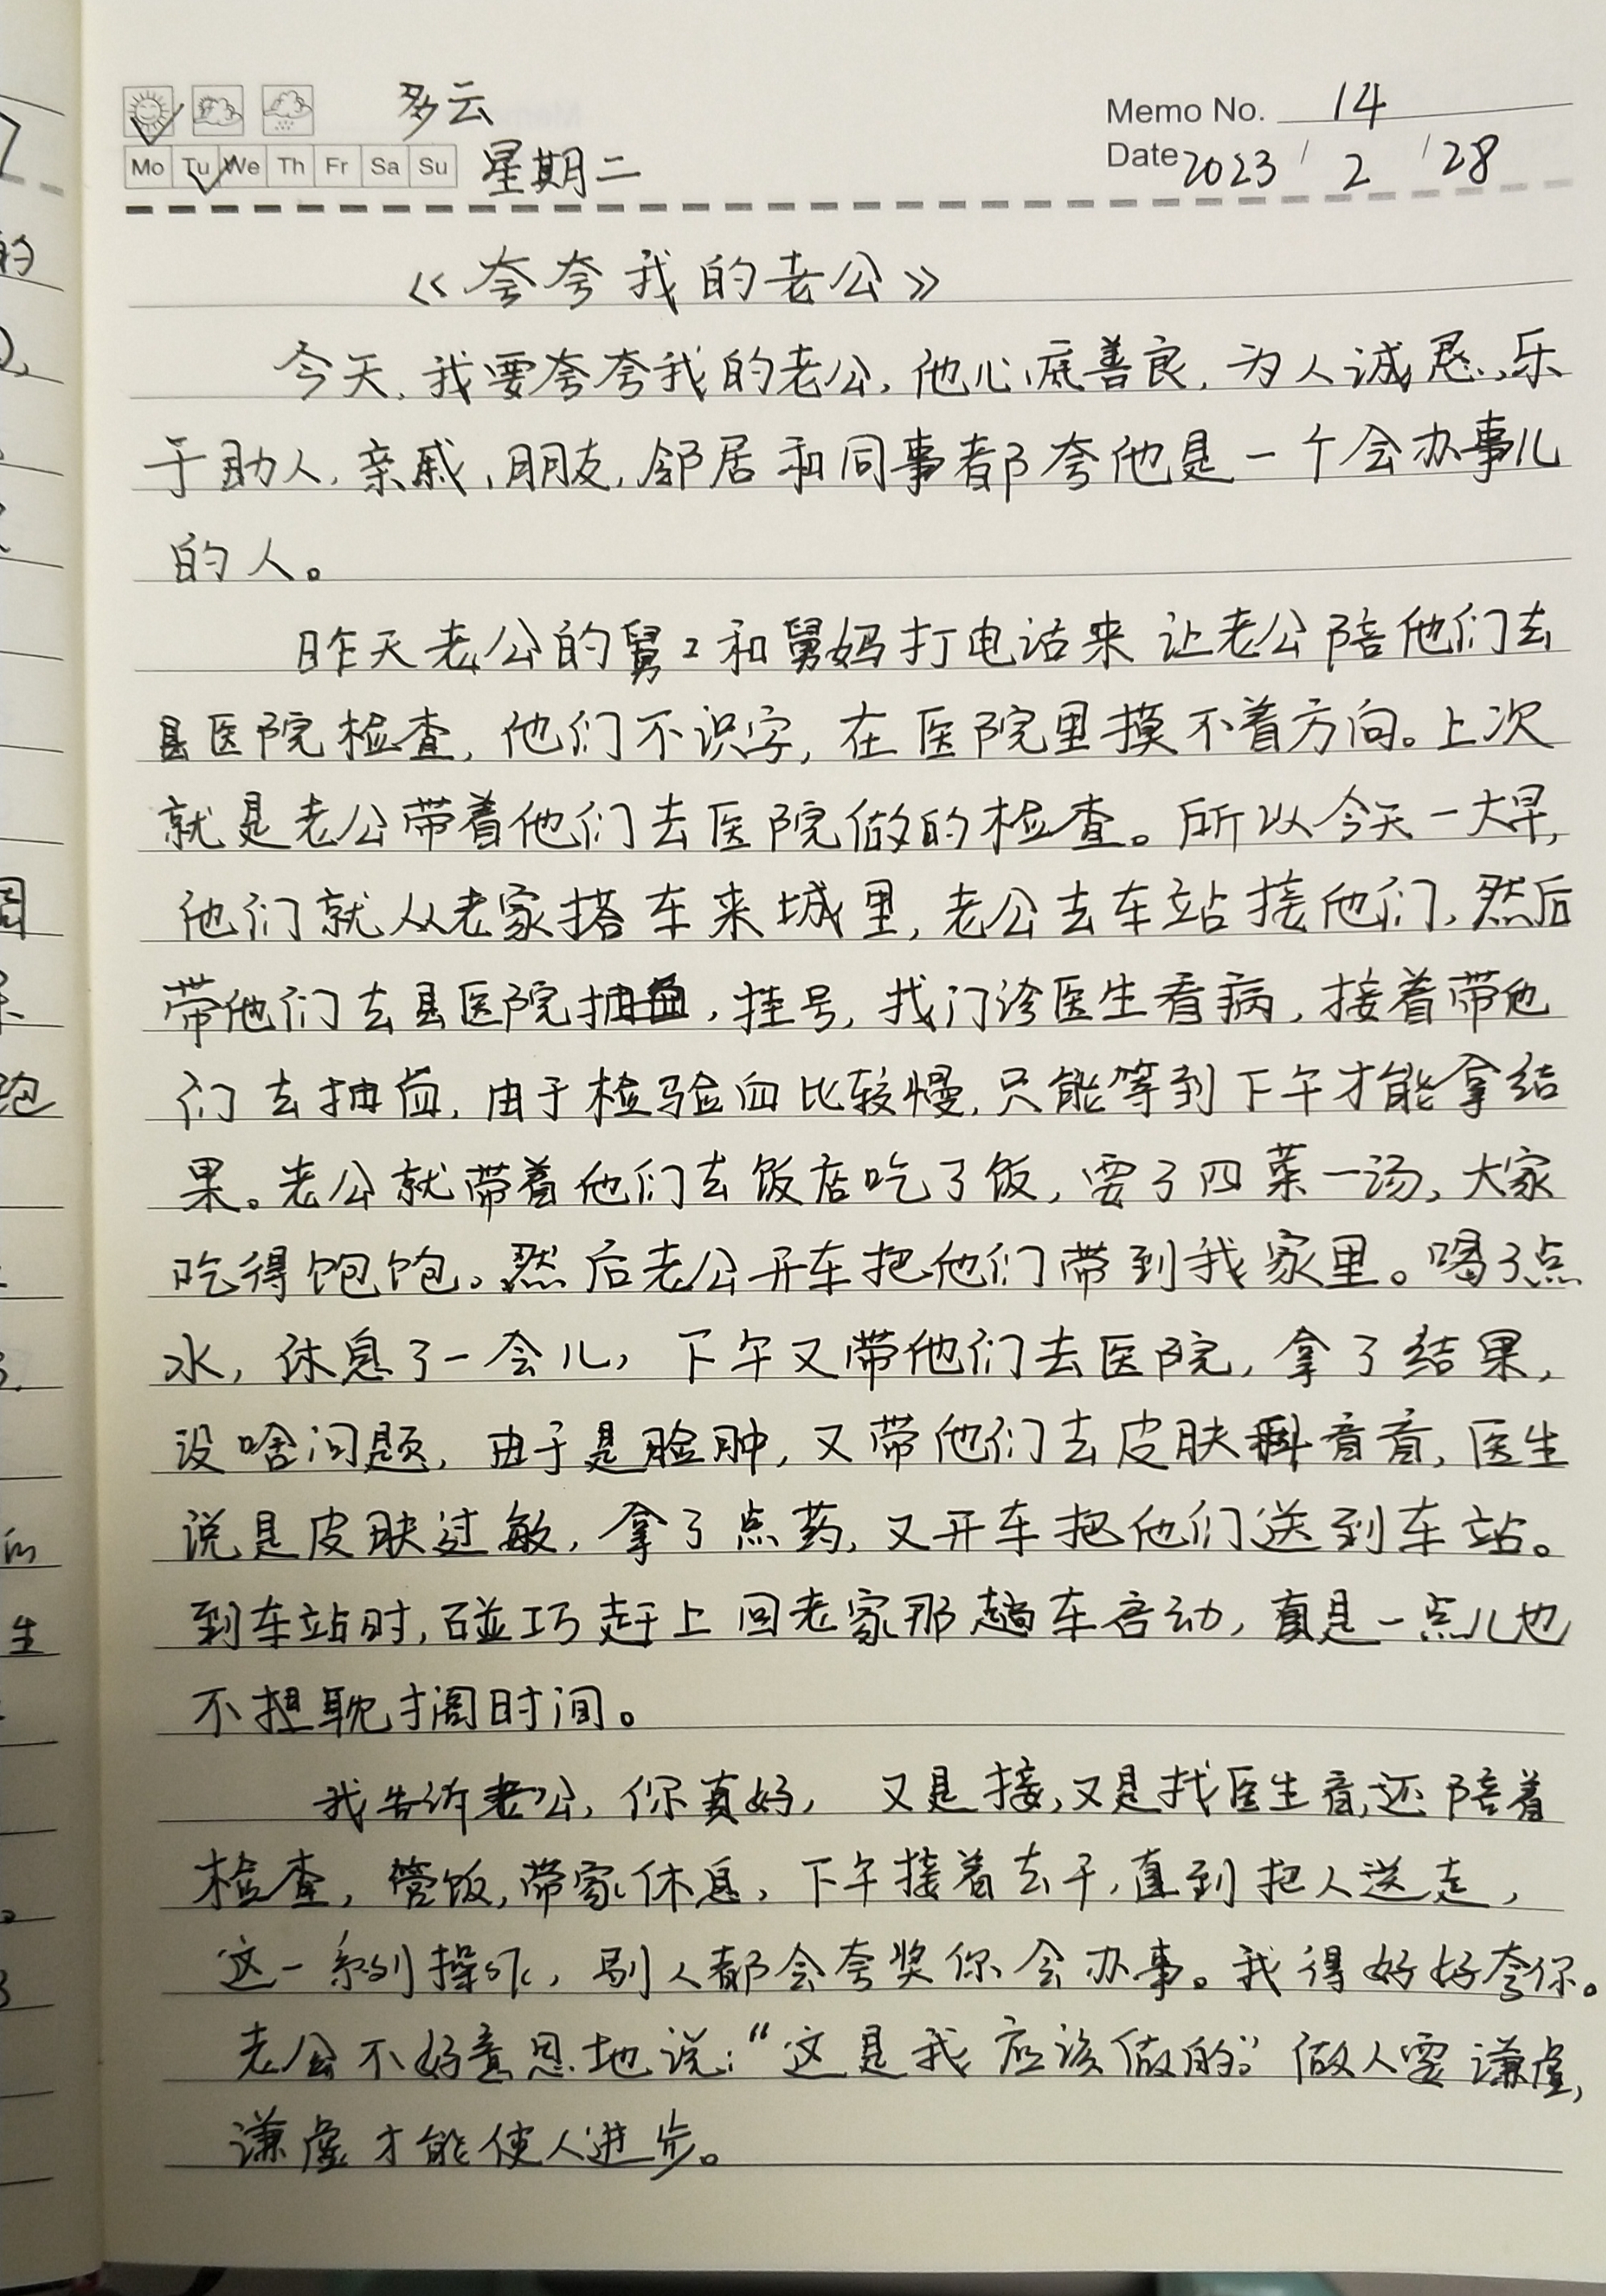 多云
Memo No. 14
Mo Tu We Th Fr Sa Su 星期二
Date 2023 / 2 / 28
《夸夸我的老公》
今天,我要夸夸我的老公,他心底善良,为人诚恳,乐
于助人,亲戚,朋友,邻居和同事都夸他是一个会办事儿
的人。
昨天老公的舅2和舅妈打电话来 让老公陪他们去
县医院检查,他们不识字,在医院里摸不着方向。上次
就是老公带着他们去医院做的检查。所以今天一大早,
他们就从老家搭车来城里,老公去车站接他们,然后
带他们去县医院抽血,挂号,找门诊医生看病,接着带他
们去抽血,由于检验血比较慢,只能等到下午才能拿结
果。老公就带着他们去饭店吃了饭,要了四菜一汤,大家
吃得饱饱。然后老公开车把他们带到我家里。喝了点
水,休息了一会儿,下午又带他们去医院,拿了结果,
没啥问题,由于是脸肿,又带他们去皮肤科看看,医生
说是皮肤过敏,拿了点药,又开车把他们送到车站。
到车站时,碰巧赶上回老家那趟车启动,真是一点儿也
不想耽搁时间。
我告诉老公,你真好, 又是接,又是找医生看,还陪着
检查,管饭,带家休息,下午接着去干,直到把人送走,
这一系列操作,别人都会夸奖你会办事。我得好好夸你。
老公不好意思地说:“这是我应该做的。”做人要谦虚,
谦虚才能使人进步。